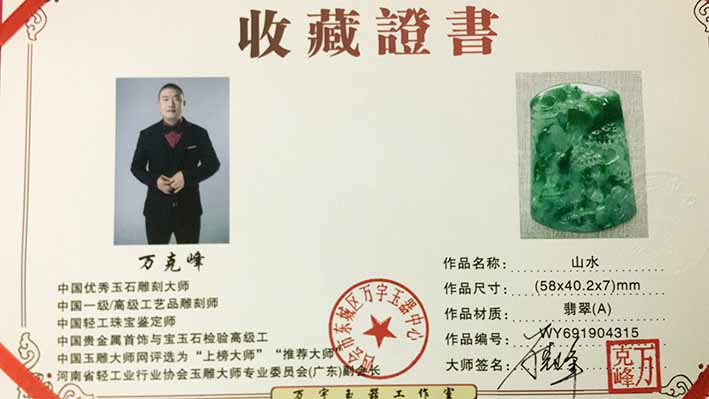 收藏證書
万克峰
中国优秀玉石雕刻大师
中国一级/高级工艺品雕刻师
中国轻工珠宝鉴定师
中国贵金属首饰与宝玉石检验高级工
中国玉雕大师网评选为“上榜大师”“推荐大师”
河南省轻工业行业协会玉雕大师专业委员会(广东)副会长
市东城区万字玉器中心
作品名称： 山水
作品尺寸： (58x40.2x7)mm
作品材质： 翡翠(A)
作品编号： WY691904315
大师签名：
万克峰
万字玉器工作室